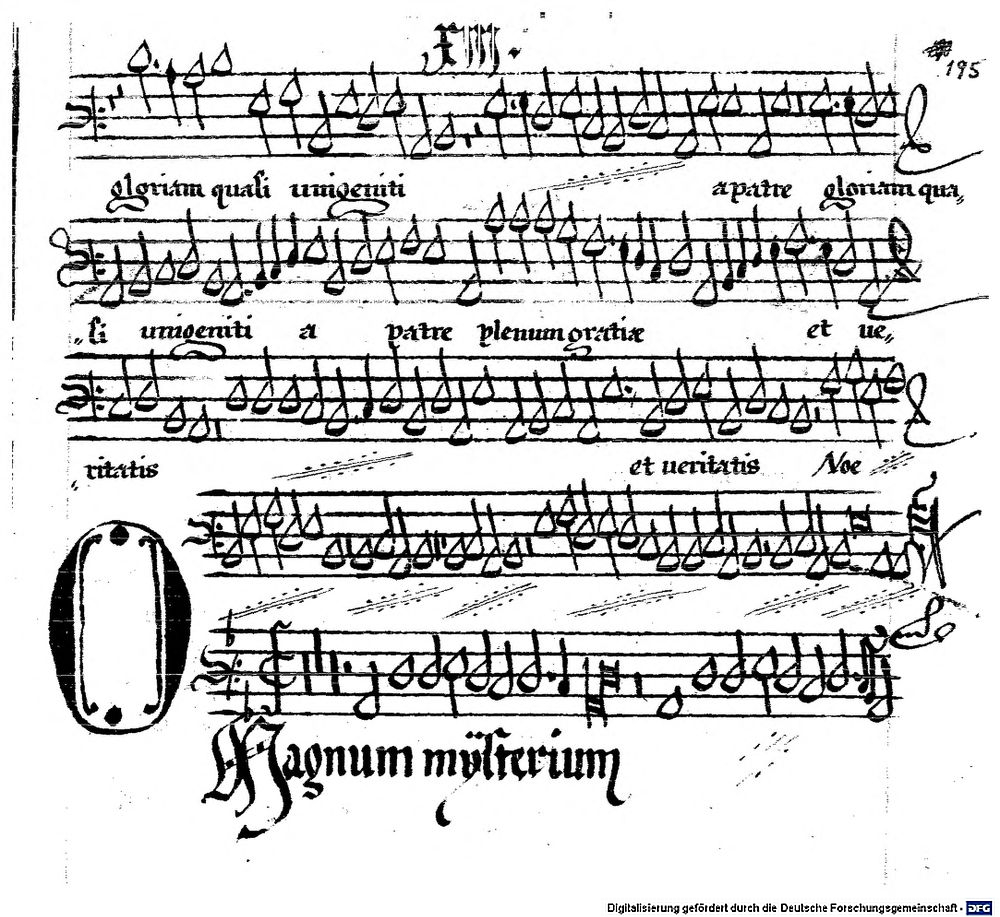 XIII.
195
gloriam quasi unigeniti apatre gloriam qua„
„si unigeniti a patre plenum gratiæ et ue„
„ritatis et ueritatis Noe
O
Magnum mÿsterium
Digitalisierung gefördert durch die Deutsche Forschungsgemeinschaft - DFG